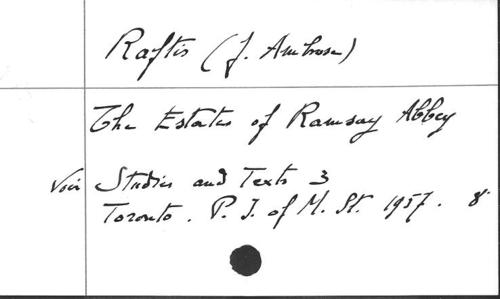 Raftis (J. Ambrose)
The Estates of Ramsay Abbey
Voir Studies and Texts 3
Toronto. P. I. of M. St. 1957. 8°